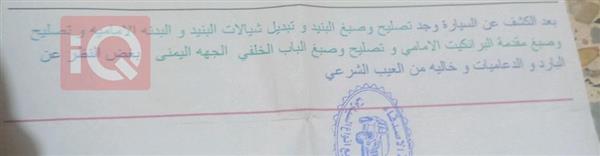 بعد الكشف عن السيارة وجد تصليح وصبغ البنيد و تبديل شيالات البنيد و البدنه الاماميه و تصليح
وصبغ مقدمة البرانكيت الامامي و تصليح وصبغ الباب الخلفي الجهه اليمنى بعض النضر عن
البارد و الدعاميات و خاليه من العيب الشرعي
iQ